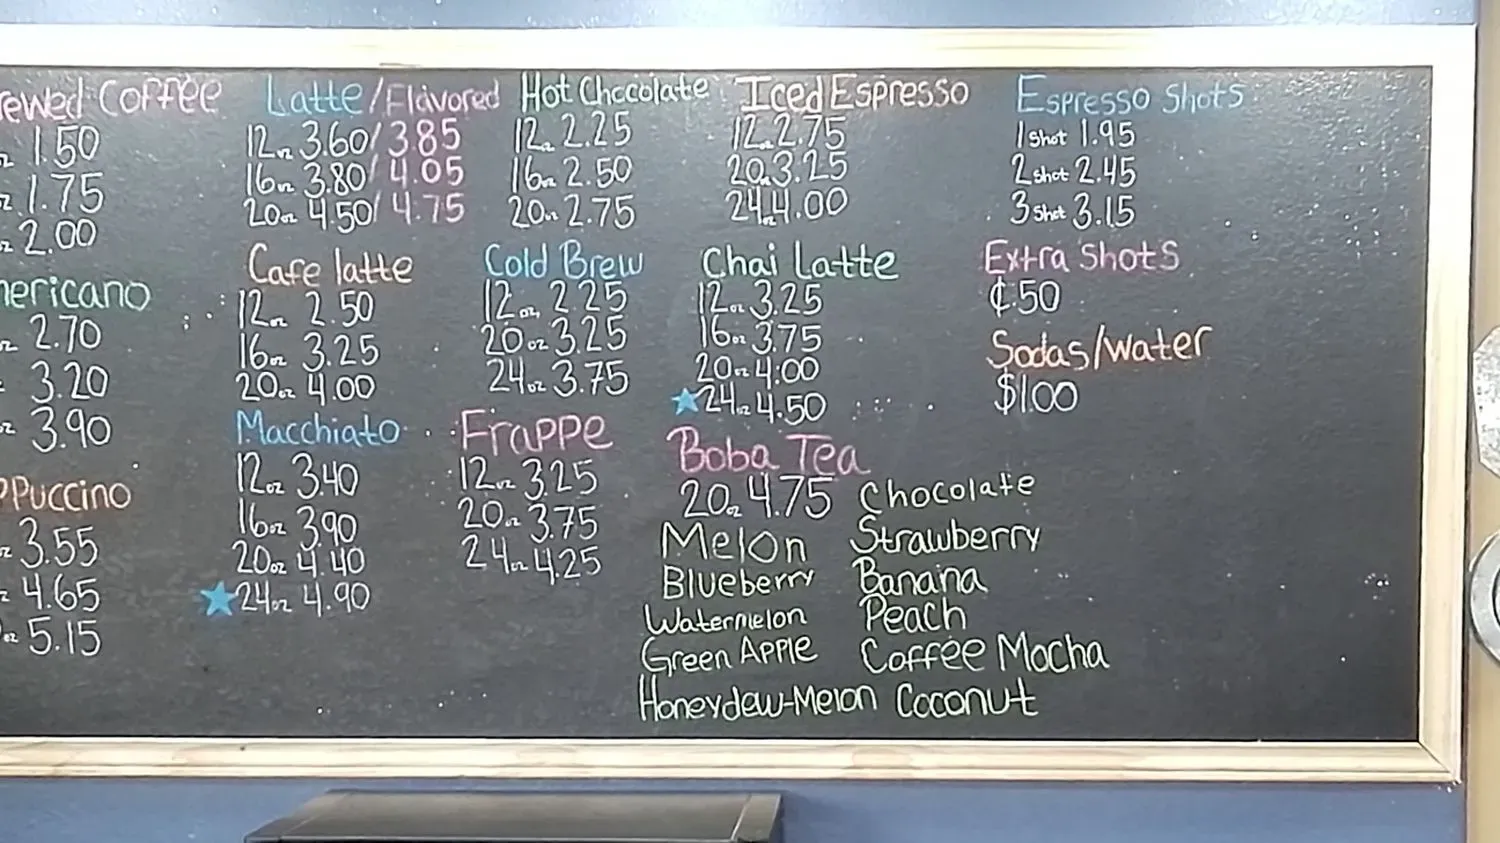 Coffee
1.50
1.75
2.00
2.70
3.20
3.90
3.55
4.65
5.15
Latte/Flavored
12oz 3.60/3.85
16oz 3.80/4.05
20oz 4.50/4.75
Cafe latte
12oz 2.50
16oz 3.25
20oz 4.00
Macchiato
12oz 3.40
16oz 3.90
20oz 4.40
24oz 4.90
Hot Chocolate
12oz 2.25
16oz 2.50
20oz 2.75
Cold Brew
12oz 2.25
20oz 3.25
24oz 3.75
Frappe
12oz 3.25
20oz 3.75
24oz 4.25
Iced Espresso
12oz 2.75
20oz 3.25
24oz 4.00
Chai Latte
12oz 3.25
16oz 3.75
20oz 4.00
24oz 4.50
Boba Tea
20oz 4.75
Melon
Blueberry
Watermelon
Green Apple
Honeydew-Melon
Chocolate
Strawberry
Banana
Peach
Coffee Mocha
Coconut
Espresso Shots
1 shot 1.95
2 shot 2.45
3 shot 3.15
Extra Shots
¢.50
Sodas/water
$1.00